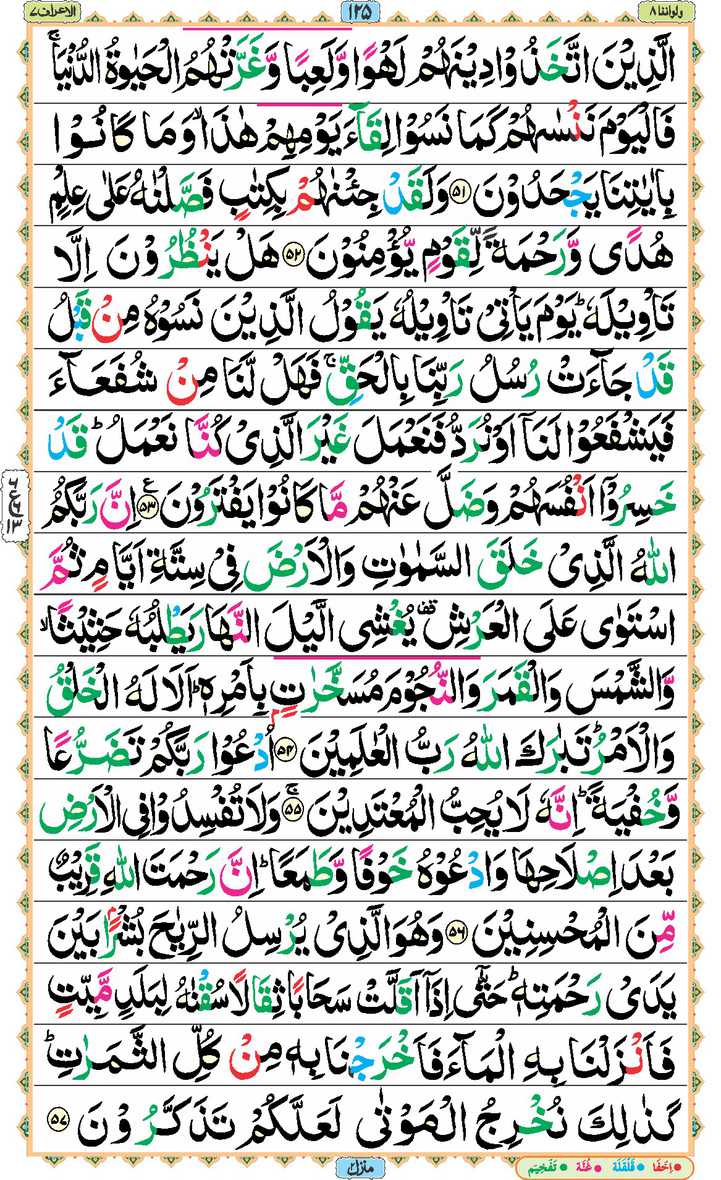 ولواننا ۸
۱۲۵
الاعراف ۷
الَّذِيْنَ اتَّخَذُوْا دِيْنَهُمْ لَهْوًا وَّلَعِبًا وَّغَرَّتْهُمُ الْحَيٰوةُ الدُّنْيَا ۚ
فَالْيَوْمَ نَنْسٰىهُمْ كَمَا نَسُوْا لِقَآءَ يَوْمِهِمْ هٰذَا ۙ وَمَا كَانُوْا
بِاٰيٰتِنَا يَجْحَدُوْنَ ۝۵۱ وَلَقَدْ جِئْنٰهُمْ بِكِتٰبٍ فَصَّلْنٰهُ عَلٰى عِلْمٍ
هُدًى وَّرَحْمَةً لِّقَوْمٍ يُّؤْمِنُوْنَ ۝۵۲ هَلْ يَنْظُرُوْنَ اِلَّا
تَاْوِيْلَهٗ ؕ يَوْمَ يَاْتِيْ تَاْوِيْلُهٗ يَقُوْلُ الَّذِيْنَ نَسُوْهُ مِنْ قَبْلُ
قَدْ جَآءَتْ رُسُلُ رَبِّنَا بِالْحَقِّ ۚ فَهَلْ لَّنَا مِنْ شُفَعَآءَ
فَيَشْفَعُوْا لَنَاۤ اَوْ نُرَدُّ فَنَعْمَلَ غَيْرَ الَّذِيْ كُنَّا نَعْمَلُ ؕ قَدْ
خَسِرُوْۤا اَنْفُسَهُمْ وَضَلَّ عَنْهُمْ مَّا كَانُوْا يَفْتَرُوْنَ ۝۵۳ ع اِنَّ رَبَّكُمُ
اللهُ الَّذِيْ خَلَقَ السَّمٰوٰتِ وَالْاَرْضَ فِيْ سِتَّةِ اَيَّامٍ ثُمَّ
اسْتَوٰى عَلَى الْعَرْشِ ۫ يُغْشِي الَّيْلَ النَّهَارَ يَطْلُبُهٗ حَثِيْثًا ۙ
وَّالشَّمْسَ وَالْقَمَرَ وَالنُّجُوْمَ مُسَخَّرٰتٍۭ بِاَمْرِهٖ ؕ اَلَا لَهُ الْخَلْقُ
وَالْاَمْرُ ؕ تَبٰرَكَ اللهُ رَبُّ الْعٰلَمِيْنَ ۝۵۴ اُدْعُوْا رَبَّكُمْ تَضَرُّعًا
وَّخُفْيَةً ؕ اِنَّهٗ لَا يُحِبُّ الْمُعْتَدِيْنَ ۝۵۵ ۚ وَلَا تُفْسِدُوْا فِي الْاَرْضِ
بَعْدَ اِصْلَاحِهَا وَادْعُوْهُ خَوْفًا وَّطَمَعًا ؕ اِنَّ رَحْمَتَ اللهِ قَرِيْبٌ
مِّنَ الْمُحْسِنِيْنَ ۝۵۶ وَهُوَ الَّذِيْ يُرْسِلُ الرِّيٰحَ بُشْرًۢا بَيْنَ
يَدَيْ رَحْمَتِهٖ ؕ حَتّٰۤى اِذَاۤ اَقَلَّتْ سَحَابًا ثِقَالًا سُقْنٰهُ لِبَلَدٍ مَّيِّتٍ
فَاَنْزَلْنَا بِهِ الْمَآءَ فَاَخْرَجْنَا بِهٖ مِنْ كُلِّ الثَّمَرٰتِ ؕ
كَذٰلِكَ نُخْرِجُ الْمَوْتٰى لَعَلَّكُمْ تَذَكَّرُوْنَ ۝۵۷
۶ ع ۱۳
منزل ۲
اِخفَا قَلقَلَة غُنَّة تَفْخِيم